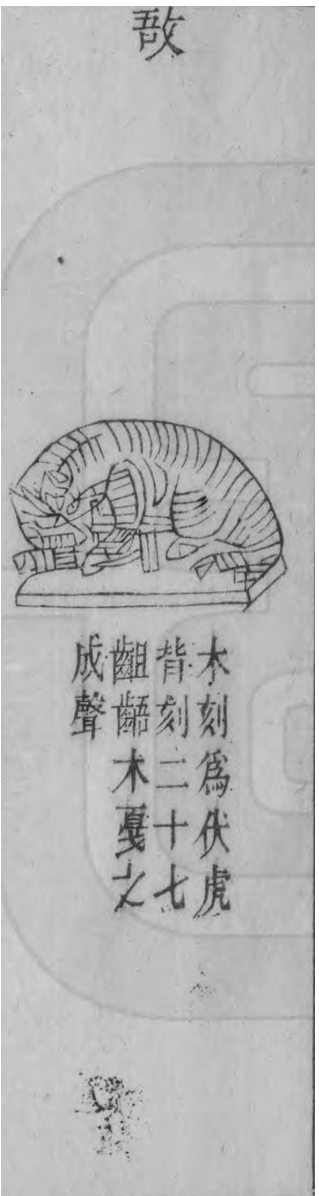 敔
木刻爲伏虎
背刻二十七
齟齬木戞之
成聲